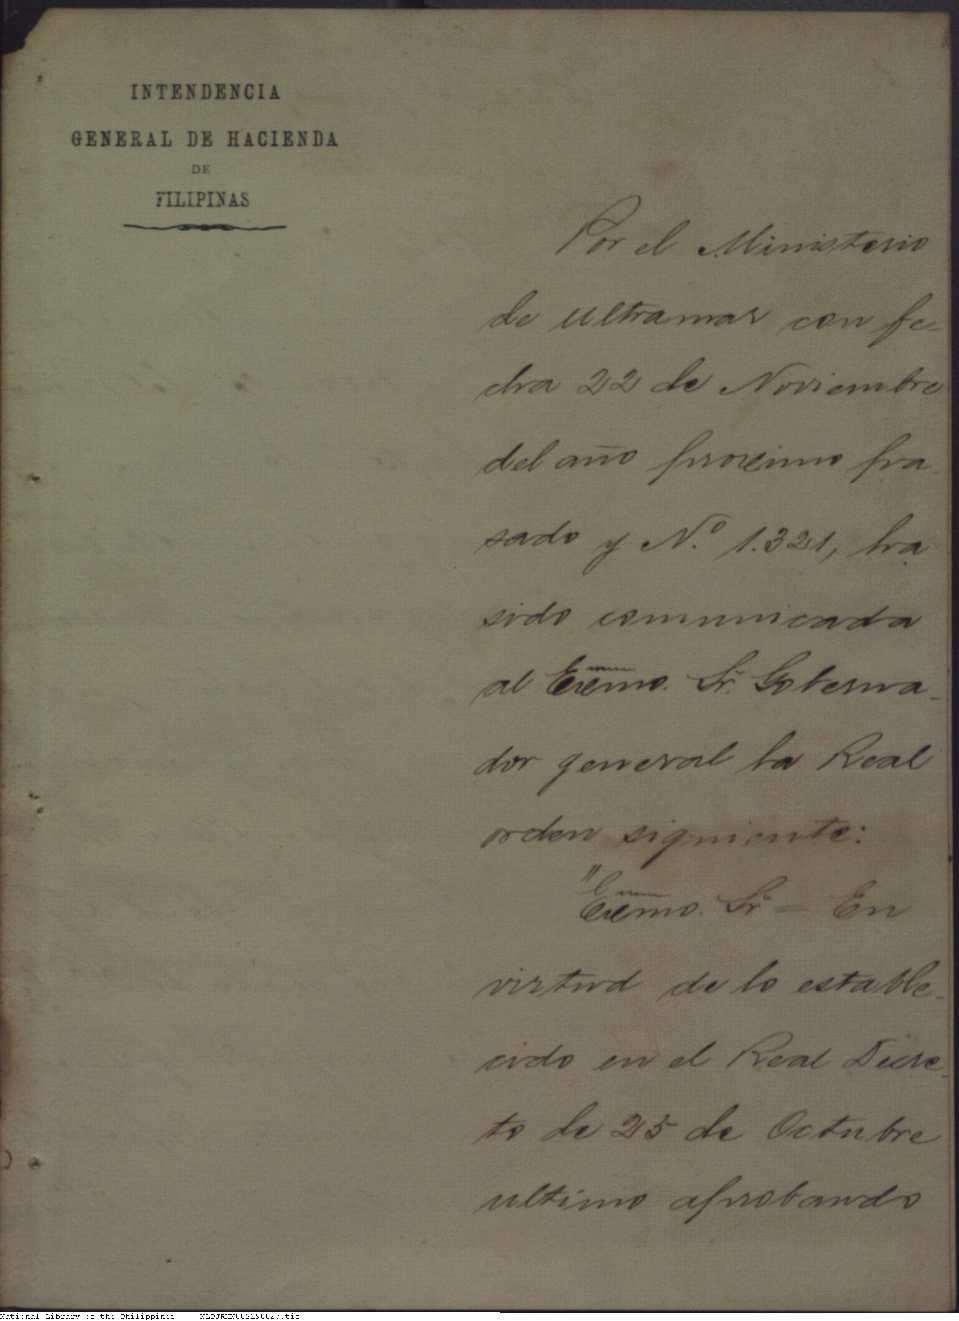 INTENDENCIA
GENERAL DE HACIENDA
DE
FILIPINAS
Por el Ministerio
de ultramar con fe-
cha 22 de Noviembre
del año proximo pa-
sado y N.º 1.321, ha
sido comunicada
al Excmo. Sr. Goberna-
dor general la Real
orden siguiente:
"Excmo. Sr = En
virtud de lo estable-
cido en el Real Decre-
to de 25 de Octubre
ultimo aprobando
National Library of the Philippines